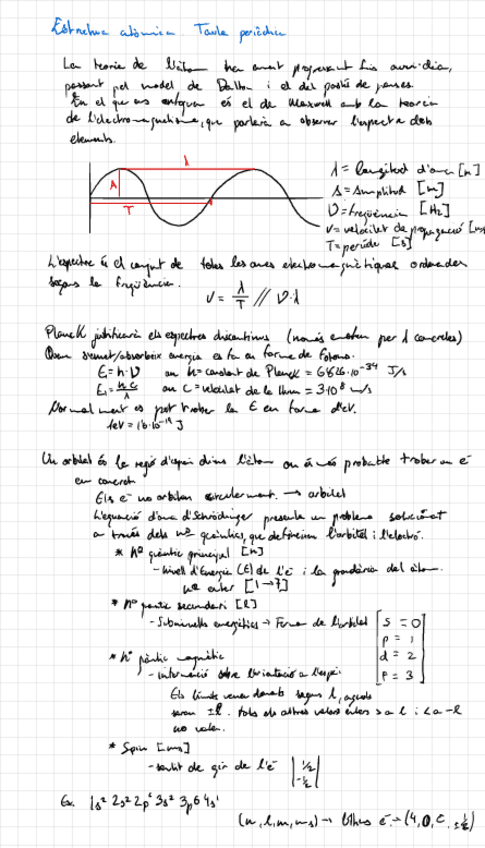 Estructura atòmica Taula periòdica
La teoria de l'àtom ha anat progressant fins avui dia,
passant pel model de Dalton i el del pastís de panses.
En el que ens enfoquem és el de Maxwell amb la teoria
de l'electromagnetisme, que portaria a observar l'espectre dels
elements.
λ
A
T
λ = longitud d'ona [m]
A = Amplitud [m]
ν = freqüència [Hz]
v = velocitat de propagació [m/s]
T = període [s]
L'espectre és el conjunt de totes les ones electromagnètiques ordenades
segons la freqüència.
v = λ/T // ν·λ
Planck justificaria els espectres discontinus (només existeixen per λ concretes)
Quan s'emet/absorbeix energia es fa en forma de fotons.
E = h·ν on h = constant de Planck = 6'626·10⁻³⁴ J/s
E = h·c/λ on c = velocitat de la llum = 3·10⁸ m/s
Normalment es pot trobar la E en forma d'eV.
1eV = 1'6·10⁻¹⁹ J
Un orbital és la regió d'espai dins l'àtom on és més probable trobar un e⁻
en concret
Els e⁻ no orbiten circularment. → orbital
L'equació d'ona d'Schrödinger presenta un problema solucionat
a través dels nºs quàntics, que defineixen l'orbital i l'electró.
* Nº quàntic principal [n]
- Nivell d'Energia (E) de l'e⁻ i la grandària del àtom.
[1→7]
* nº quàntic secundari [l]
- Subnivells energètics → Forma de l'orbital
s = 0
p = 1
d = 2
F = 3
* nº quàntic magnètic
- informació sobre l'orientació a l'espai
Els límits venen donats segons l, aquests
seran ±l. Tots els altres valors enters > a l i < a -l
no valen.
* Spin [ms]
- sentit de gir de l'e⁻ |½ -½|
Ex. 1s² 2s² 2p⁶ 3s² 3p⁶ 4s¹
(n, l, m, ms) → últim e⁻ → (4, 0, 0, ±½)